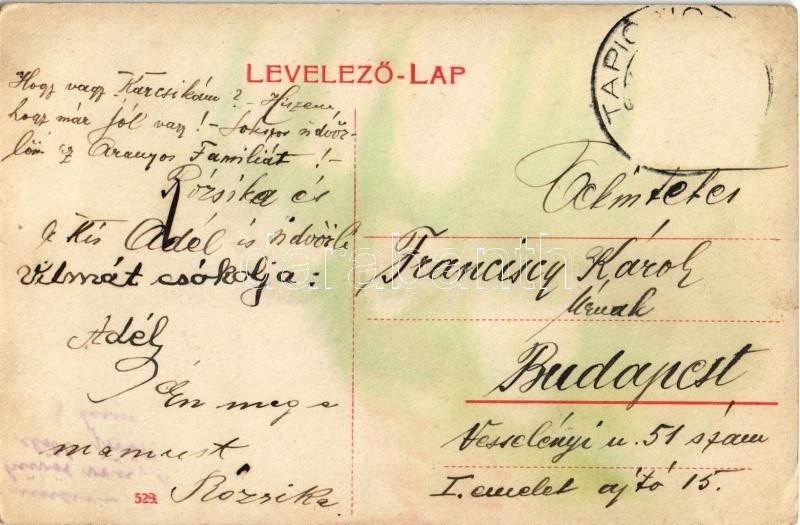 LEVELEZŐ-LAP
TAPIO
Hogy vagy Karcsikám? - Hiszem
hogy már jól vagy! - Sokszor üdvöz-
löm az Aranyos Famíliát! -
Rózsika és
a Kis Adél is üdvözli
Vilmát csókolja:
Adél
Én meg a
mamust
Rózsika.
529.
Tekintetes
Franciscy Károly
Úrnak
Budapest
Vesselényi u. 51 szám
I. emelet ajtó 15.
darabanth.com